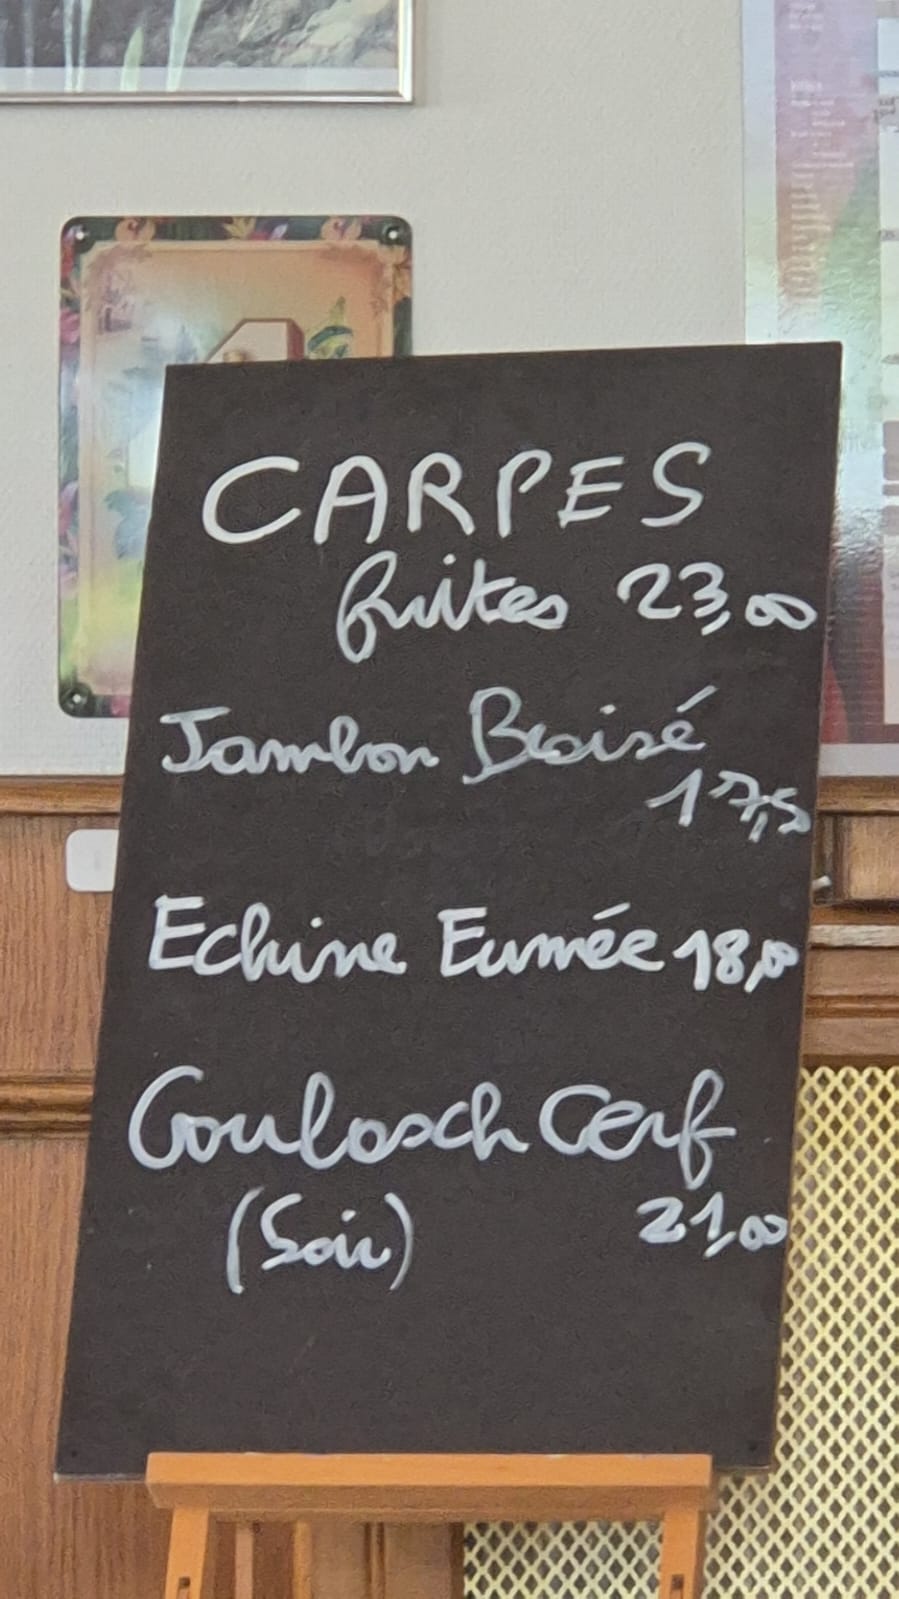 CARPES
frites 23,00
Jambon Braisé
17,5
Echine Fumée 18,00
Goulasch Cerf
(Soir) 21,00